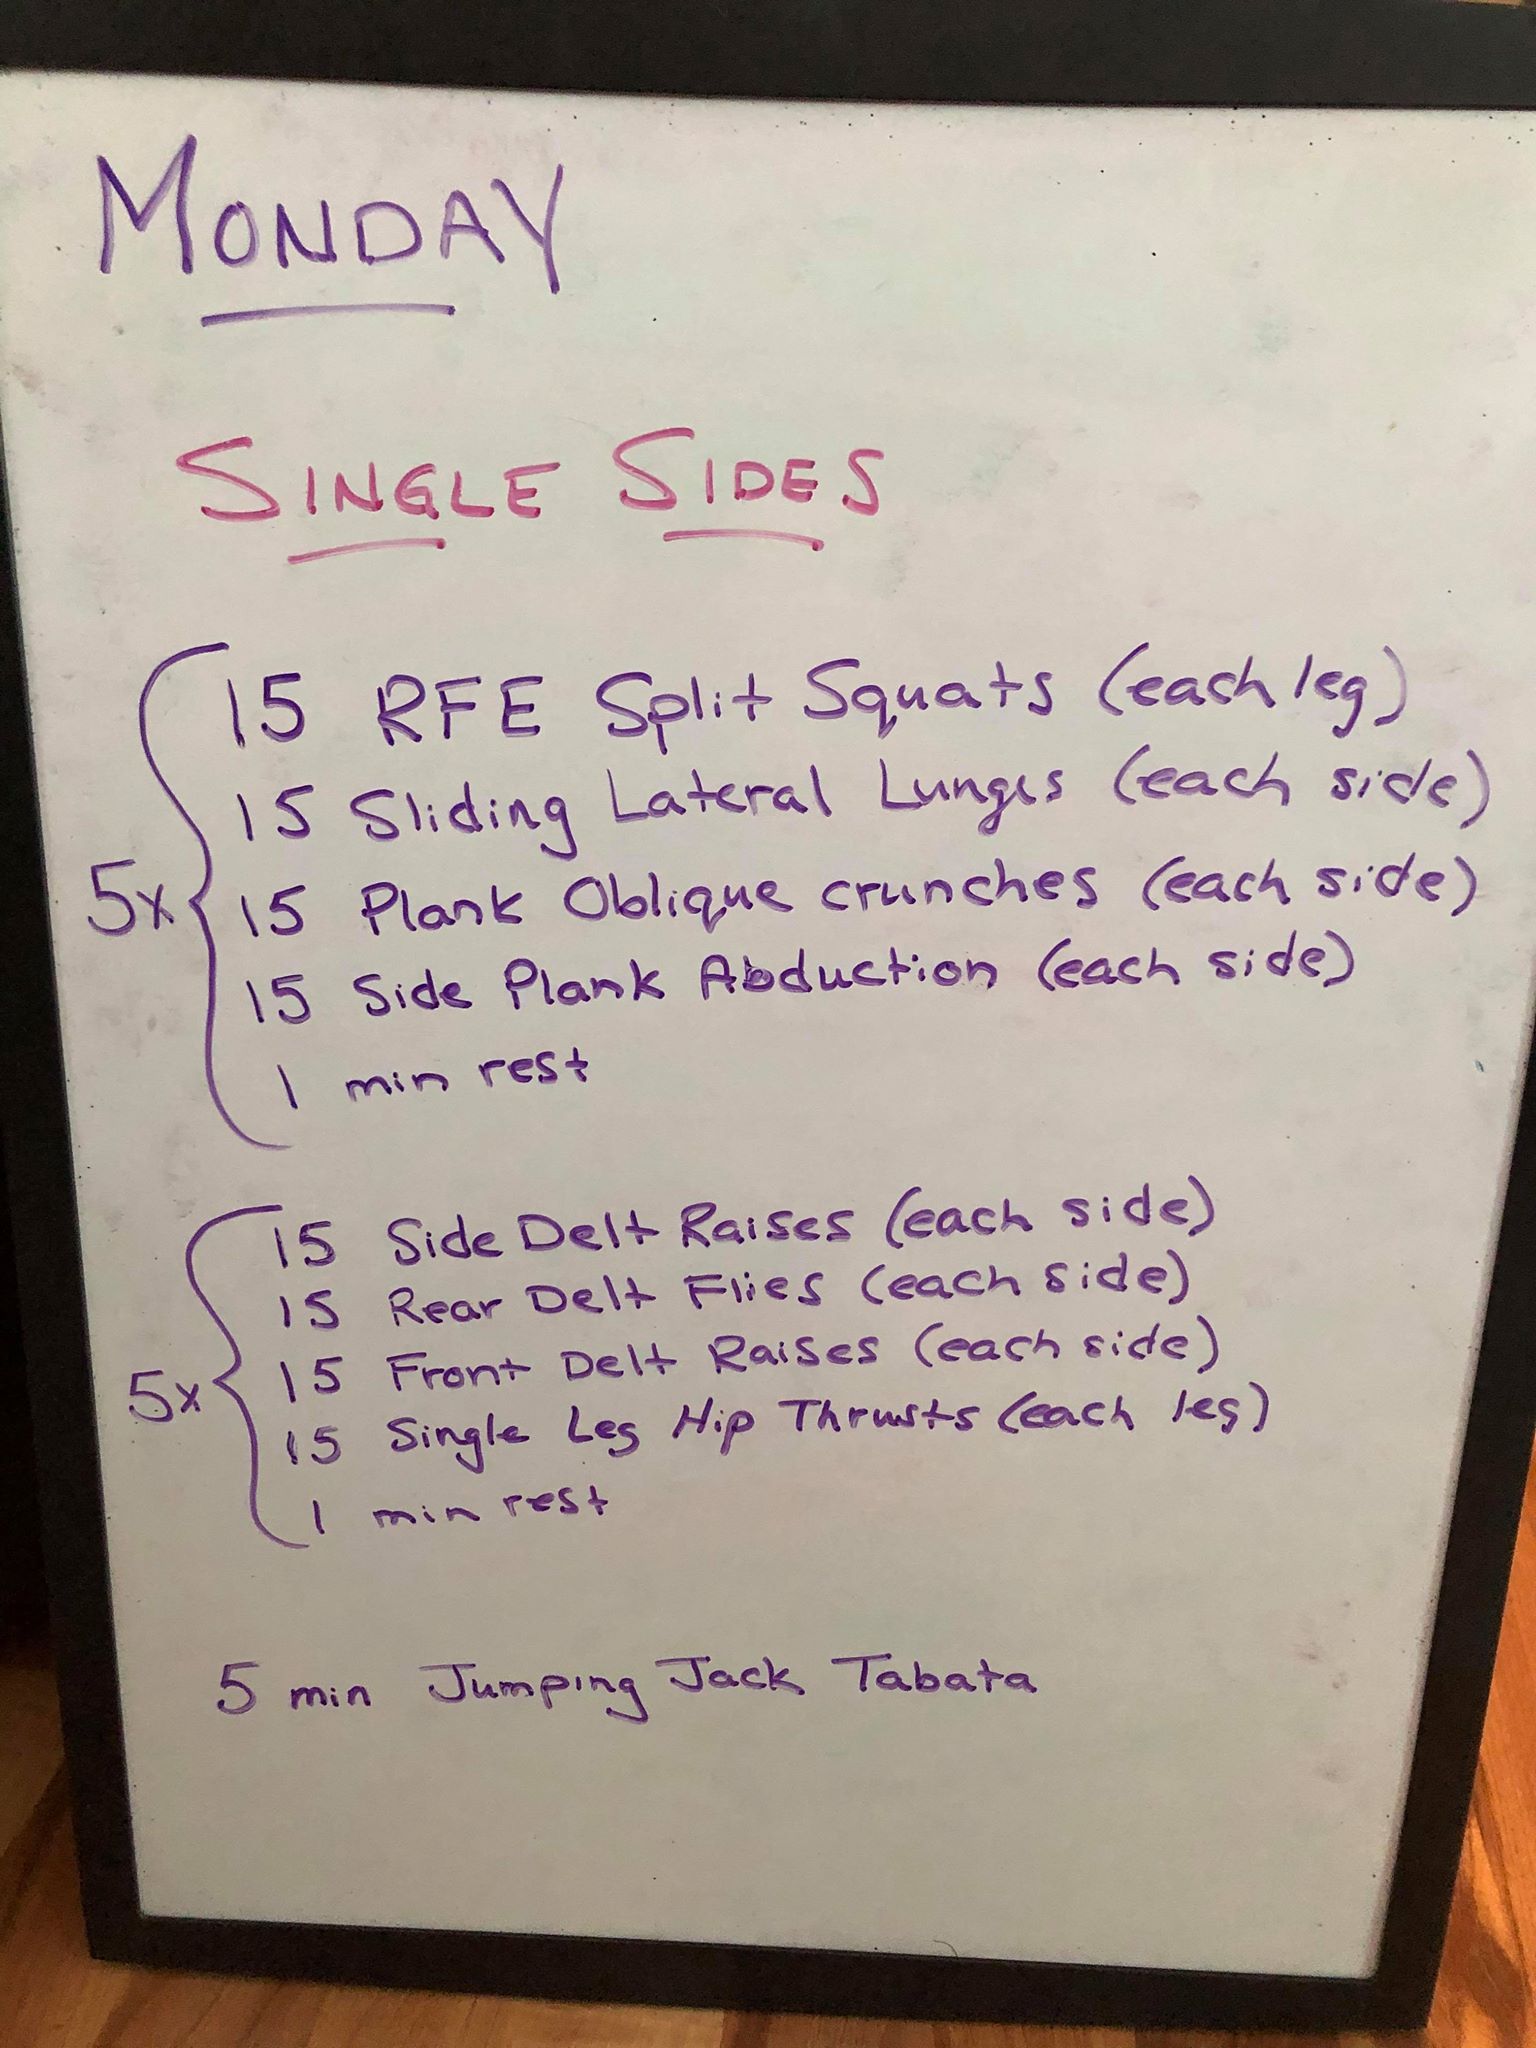 MONDAY
SINGLE SIDES
15 RFE Split Squats (each leg)
15 Sliding Lateral Lunges (each side)
5x 15 Plank Oblique crunches (each side)
15 Side Plank Abduction (each side)
1 min rest
15 Side Delt Raises (each side)
15 Rear Delt Flies (each side)
5x 15 Front Delt Raises (each side)
15 Single Leg Hip Thrusts (each leg)
1 min rest
5 min Jumping Jack Tabata